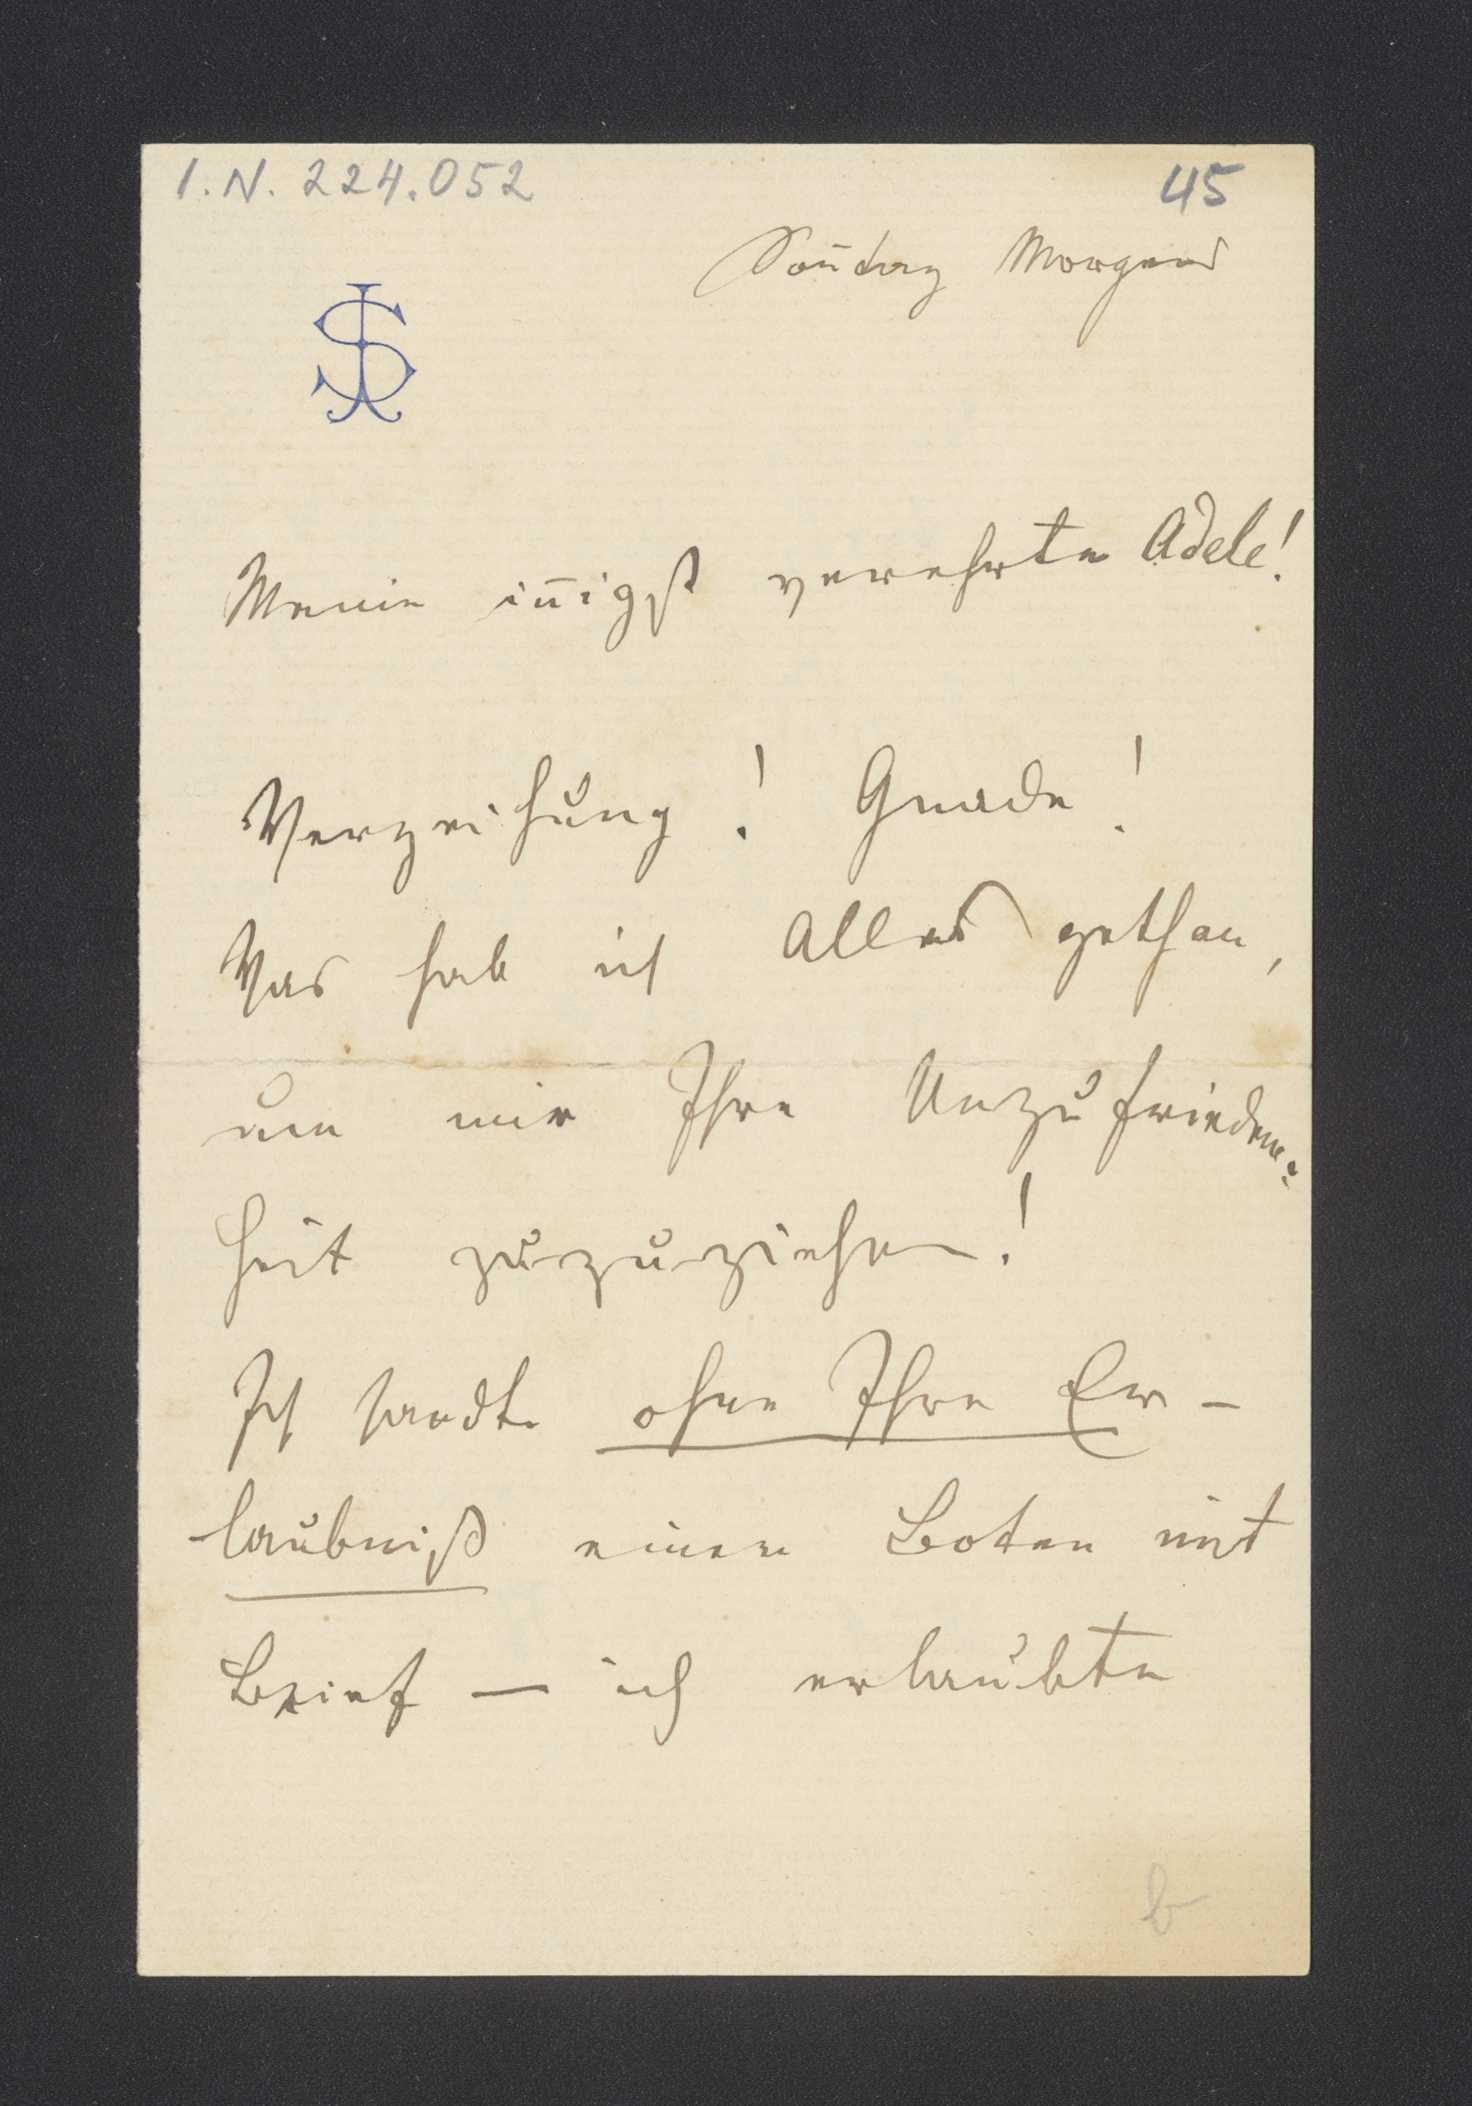 I.N. 224.052
45
Soñtag Morgens
JS
Meine iñigst verehrte Adele!
Verzeihung! Gnade!
Was hab ich Alles gethan,
um mir Ihre Unzufrieden=
heit zuzuziehen!
Ich sandte ohne Ihre Er-
laubniß einen Boten mit
Brief — ich erlaubte
b